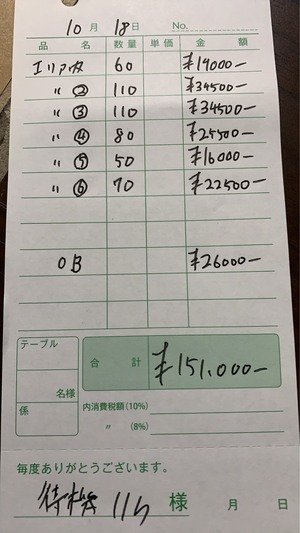 10月18日 No.
品名 数量 単価 金額
エリアカ 60 ¥19000-
〃② 110 ¥34500-
〃③ 110 ¥34500-
〃④ 80 ¥25500-
〃⑤ 50 ¥16000-
〃⑥ 70 ¥22500-
OB ¥26000-
テーブル
名様
係
合計 ¥151,000-
内消費税額(10%)
〃 (8%)
毎度ありがとうございます。
待機 11h 様 月 日